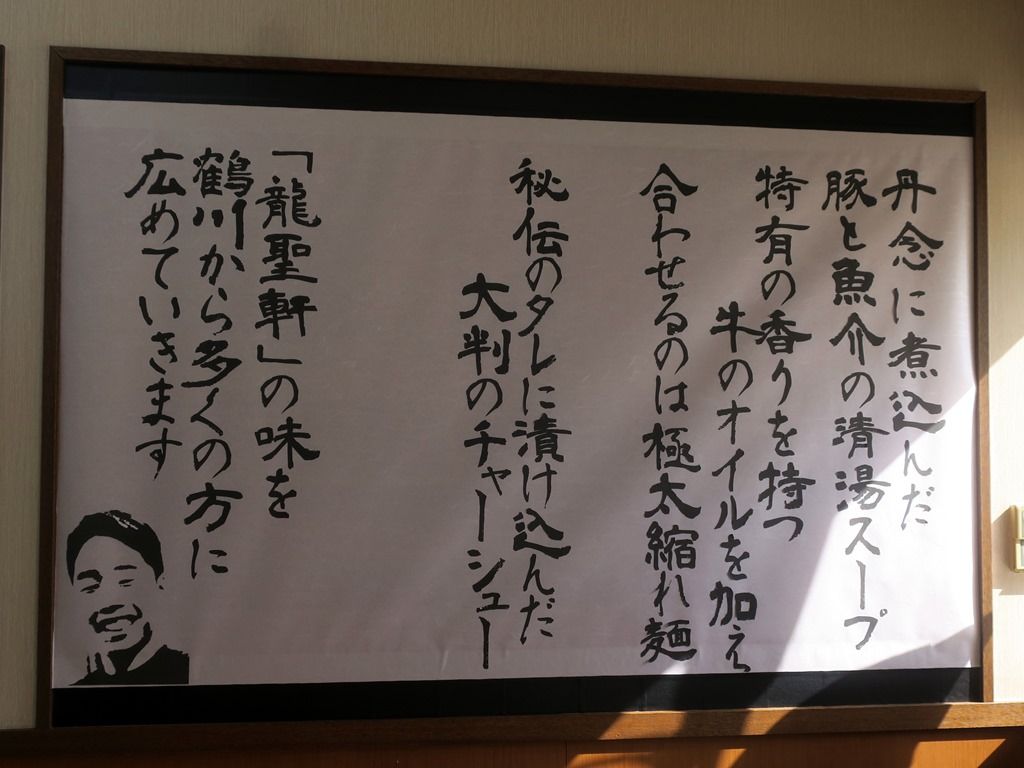 丹念に煮込んだ
豚と魚介の清湯スープ
特有の香りを持つ
牛のオイルを加え
合わせるのは極太縮れ麺
秘伝のタレに漬け込んだ
大判のチャーシュー
「龍聖軒」の味を
鶴川から多くの方に
広めていきます